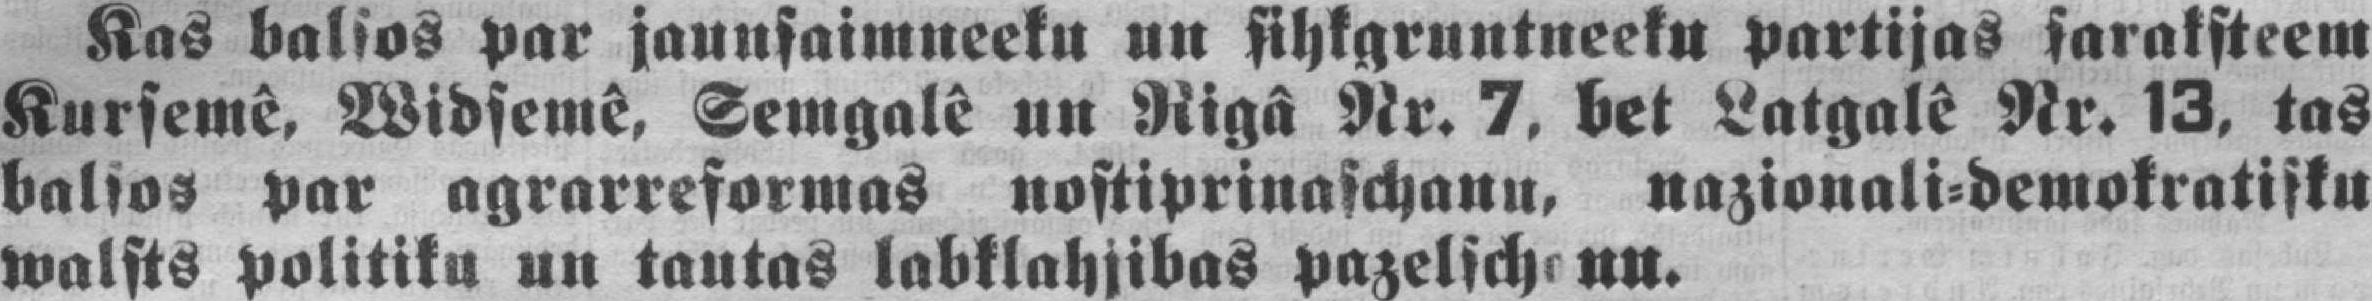 Kas balſos par jaunſaimneeku un ſihkgruntneeku partijas ſarakſteem
Kurſemê, Widſemê, Semgalê un Rigâ Nr. 7, bet Latgalê Nr. 13, tas
balſos par agrarreformas noſtiprinaſchanu, nazionali-demokratiſku
walſts politiku un tautas labklahjibas